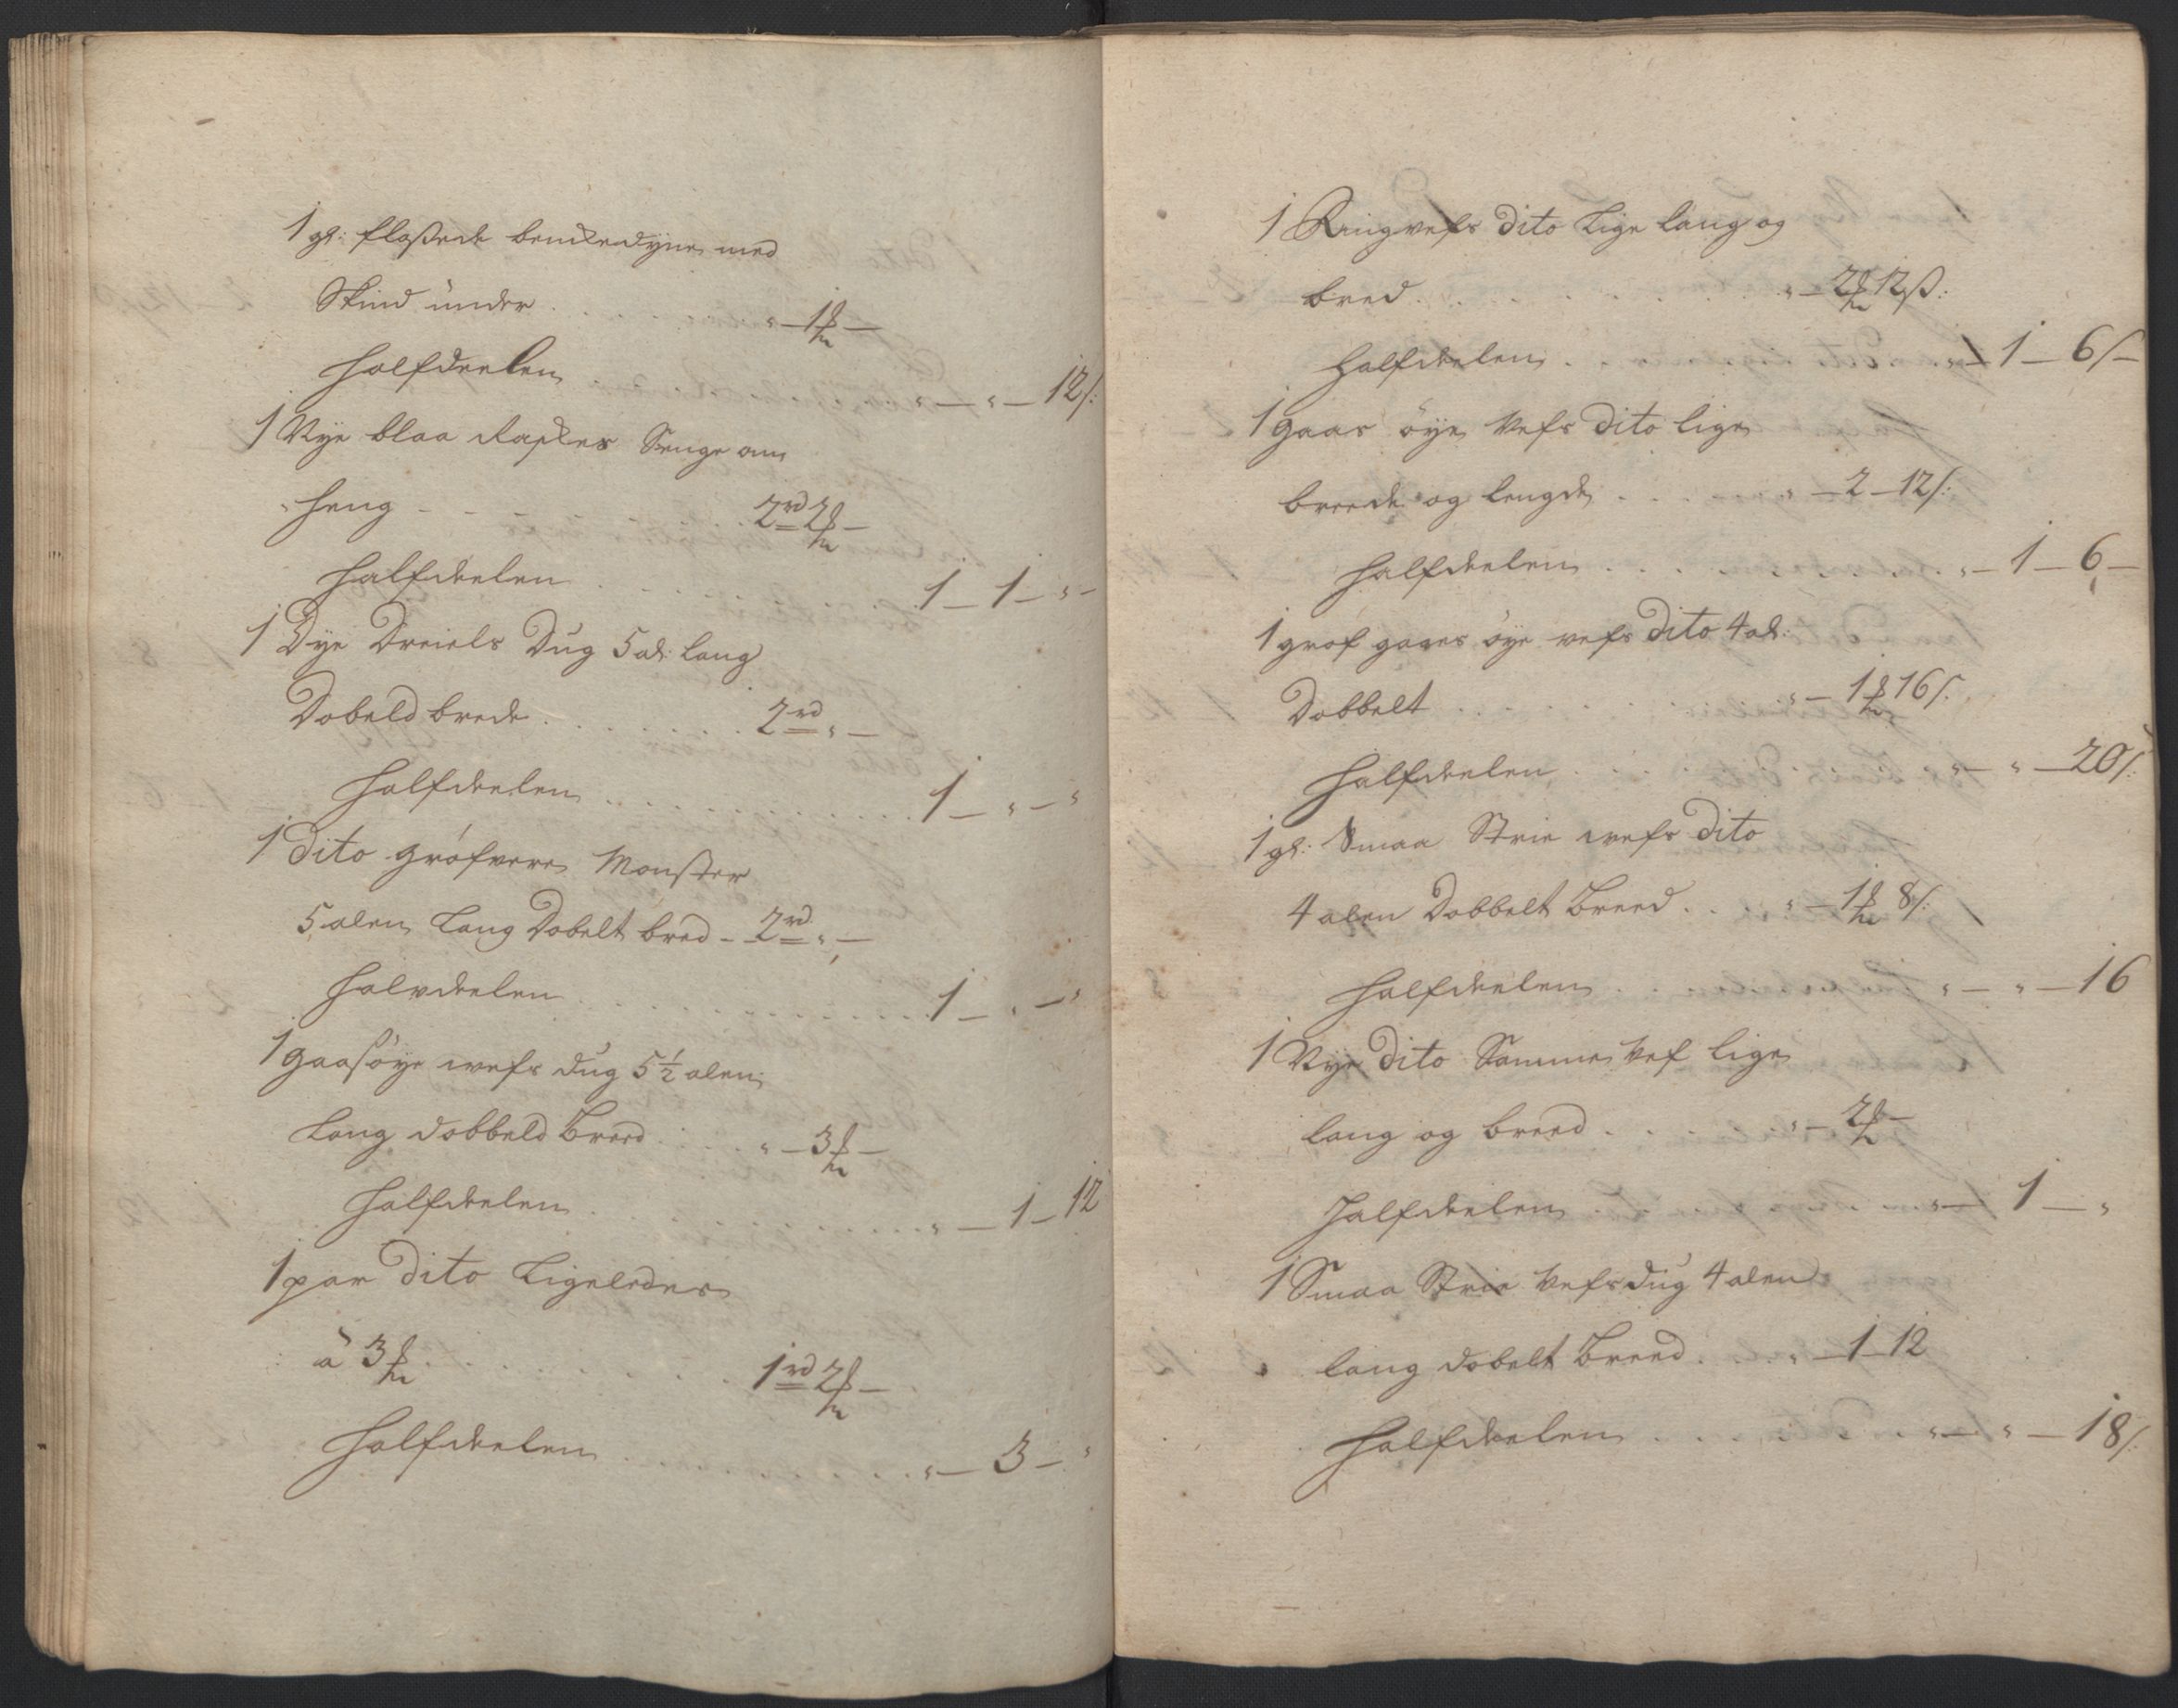 1 gl: floßede benckedyne med
Skind under . . . . . " — 1 ß —
Halfdeelen . . . . . " — " — 12 s:
1 Nye blaa Raskes Senge om
heng - - - - - 2 rd 2 ß —
Halfdeelen . . . . . 1 — 1 — "
1 Dye Dreiels Dug 5 al: lang
Dobeld brede . . . . . 2 rd " —
Halfdeelen . . . . . 1 — " — "
1 Dito gröfvere Monster
5 alen Lang Dobelt bred - 2 rd " —
Halvdeelen . . . . . 1 — " — "
1 gaasöye wefs dug 5 ½ alen
Lang dobbeld Breed . . . " — 3 ß —
Halfdeelen . . . . . " — 1 — 12
1 par Dito Ligeledes
à 3 ß . . . . . 1 rd 2 ß —
Halfdeelen . . . . . " — 3 — "
1 Ringvefs Dito Lige lang og
bred . . . . . " — 2 ß 12 ß:
Halfdeelen . . . . . " — 1 — 6 s —
1 gaas öye Vefs Dito lige
breede og lengde . . . . " — 2 — 12 s:
Halfdeelen . . . . . " — 1 — 6 —
1 grof gaaes öye vefs Dito 4 al:
Dobbelt . . . . . " — 1 ß 16 s.
Halfdeelen . . . . . " — " — 20 s:
1 gl: Smaa Strie wefs Dito
4 alen Dobbelt Breed . . " — 1 ß 8 s:
Halfdeelen . . . . . " — " — 16
1 Nye Dito Samme Vef lige
lang og breed . . . . . " — 2 ß —
Halfdeelen . . . . . " — 1 — "
1 Smaa Strie Vefs dug 4 alen
lang dobelt Breed . . . " — 1 — 12
Halfdeelen . . . . . " — " — 18 s: